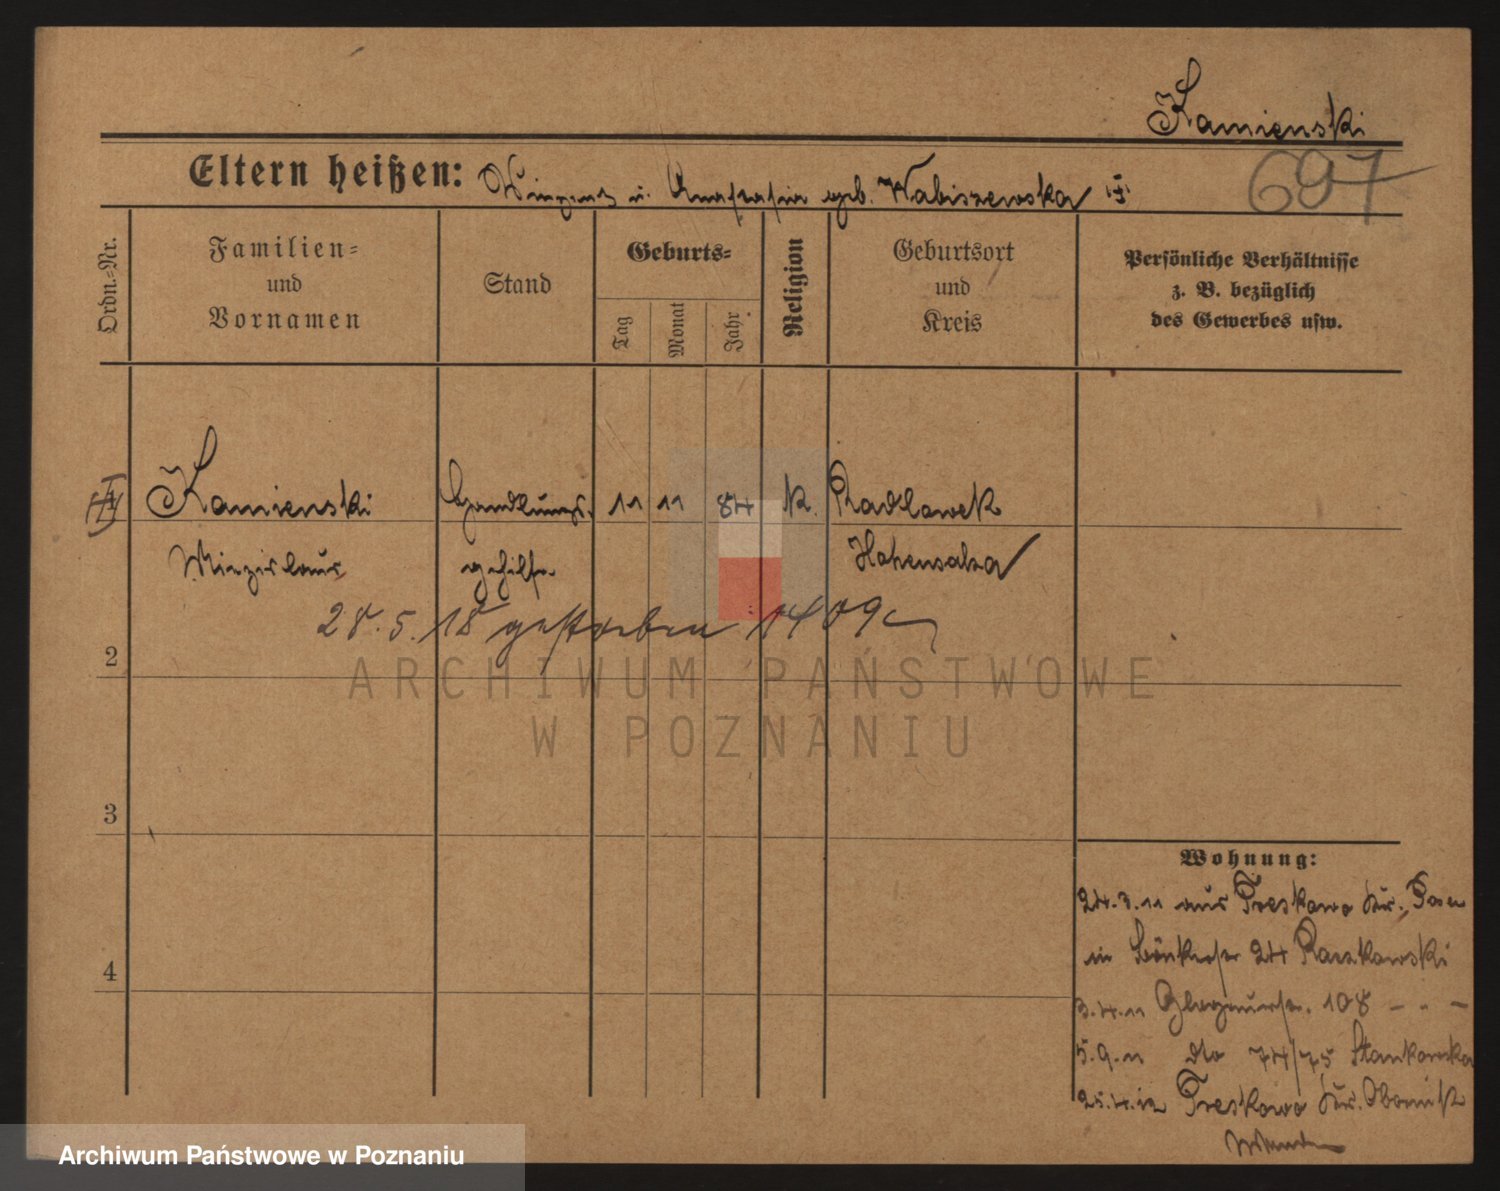 Kamienski
Eltern heißen: Vinzenz u. Anastasia geb. Wabiszewska
697
Ordn.-Nr.
Familien-
und
Vornamen
Stand
Geburts-
Tag
Monat
Jahr
Religion
Geburtsort
und
Kreis
Persönliche Verhältnisse
z. B. bezüglich
des Gewerbes usw.
Kamienski Handlungs- 11 11 84 k. Radlowek
Miezislaus gehilfe Hohensalza
28.5.18 gestorben 1409
2
3
4
Wohnung:
24.3.11 aus Treskowo Kr. Posen
in 24 Raczkowski
3.4.11 Glogauerstr. 108 – " –
5.9.11 dto 74/75 Stankowska
25.4.12 Treskowo Kr. Obornik
ARCHIWUM PAŃSTWOWE
W POZNANIU
Archiwum Państwowe w Poznaniu